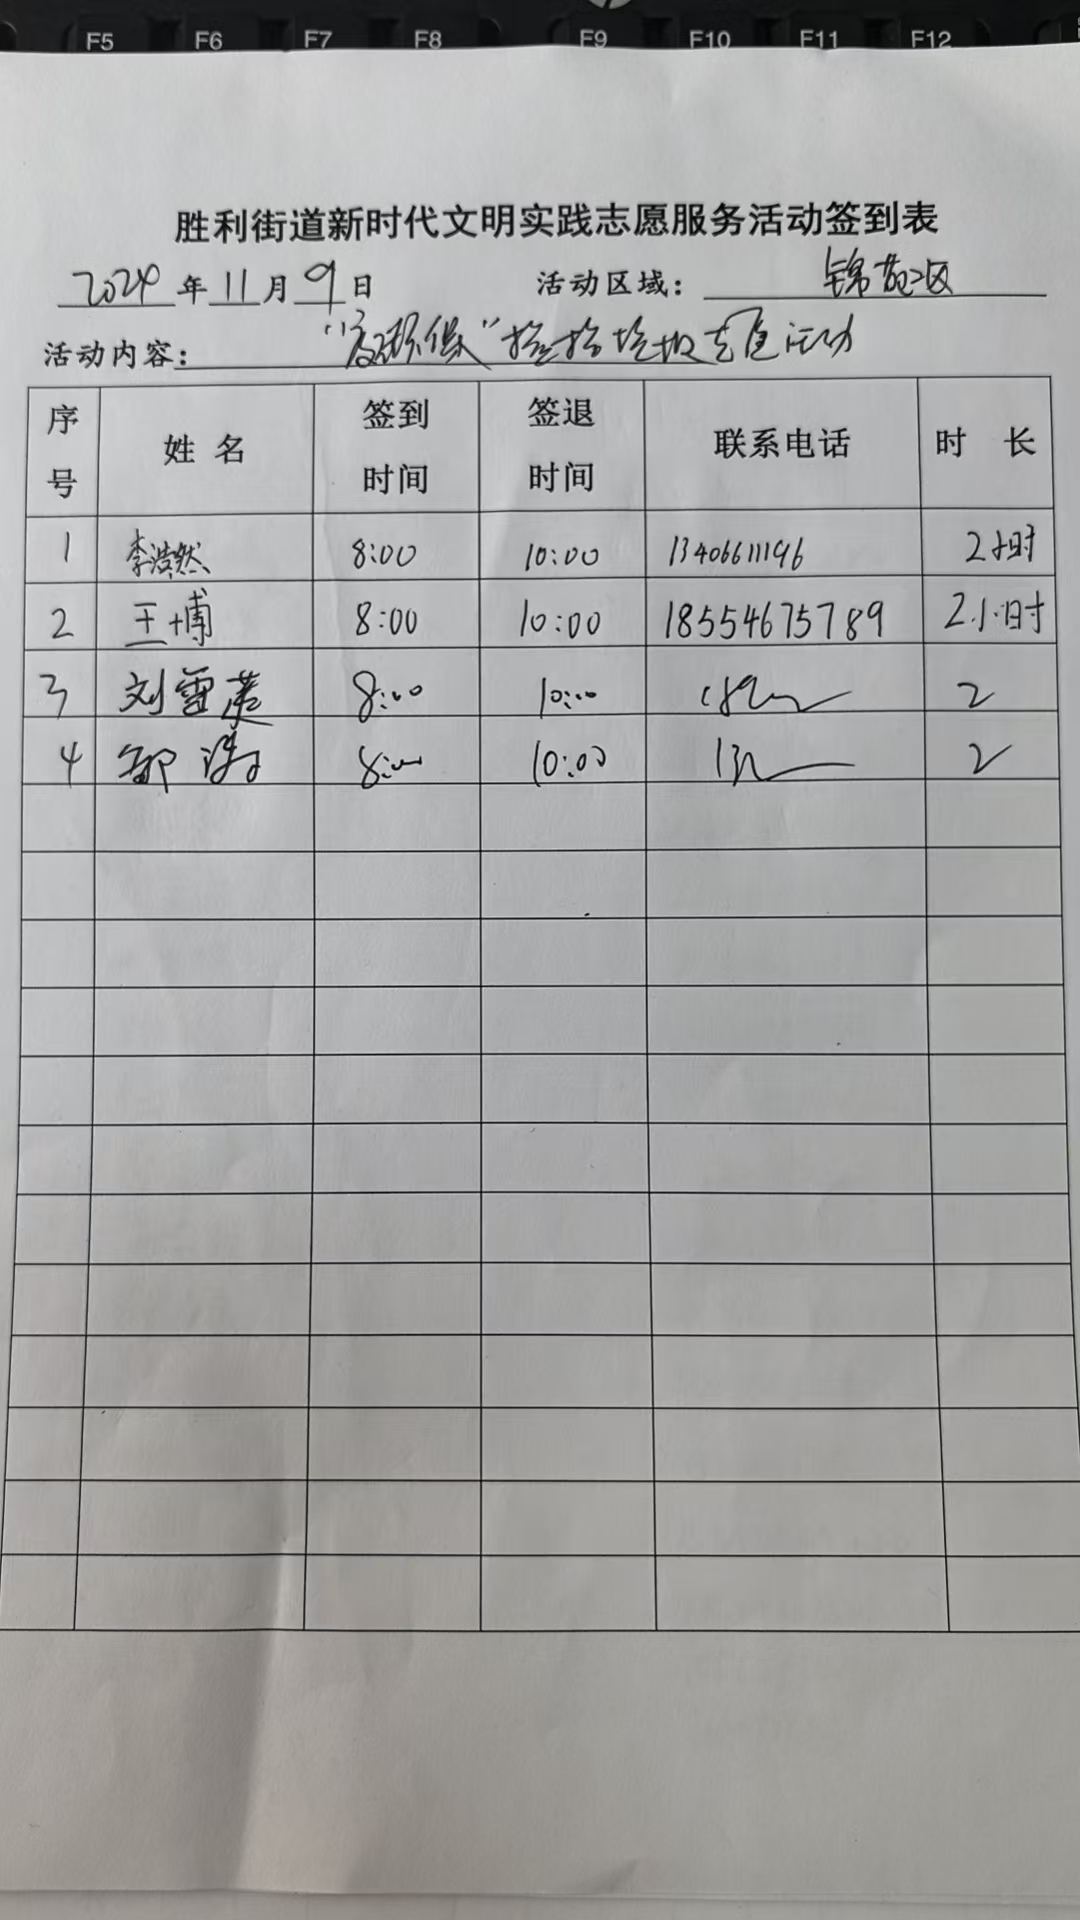 F5 F6 F7 F8 F9 F10 F11 F12
胜利街道新时代文明实践志愿服务活动签到表
2024年11月9日 活动区域： 锦苑二区
活动内容： 环保"捡拾垃圾志愿活动
序号 姓名 签到时间 签退时间 联系电话 时长
1 李浩然 8:00 10:00 13406611196 2小时
2 王博 8:00 10:00 18554675789 2小时
3 刘雪 8:00 10:00 2
4 8:00 10:00 2